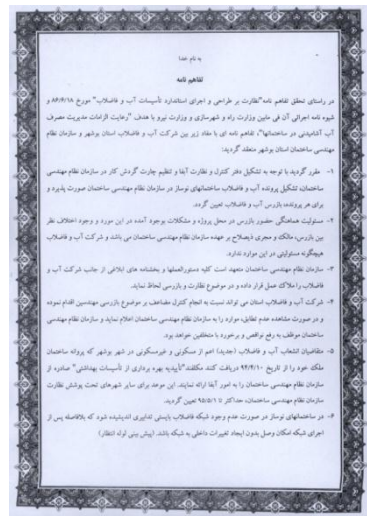 به نام خدا
تفاهم نامه
در راستای تحقق تفاهم نامه"نظارت بر طراحی و اجرای استاندارد تأسیسات آب و فاضلاب" مورخ ۸۶/۶/۱۸ و
شیوه نامه اجرائی آن فی مابین وزارت راه و شهرسازی و وزارت نیرو با هدف "رعایت الزامات مدیریت مصرف
آب آشامیدنی در ساختمانها"، تفاهم نامه ای با مفاد زیر بین شرکت آب و فاضلاب استان بوشهر و سازمان نظام
مهندسی ساختمان استان بوشهر منعقد گردید:
۱- مقرر گردید با توجه به تشکیل دفتر کنترل و نظارت آبفا و تنظیم چارت گردش کار در سازمان نظام مهندسی
ساختمان، تشکیل پرونده آب و فاضلاب ساختمانهای نوساز در سازمان نظام مهندسی ساختمان صورت پذیرد و
برای هر پرونده، بازرس آب و فاضلاب تعیین گردد.
۲- مسئولیت هماهنگی حضور بازرس در محل پروژه و مشکلات بوجود آمده در این مورد و وجود اختلاف نظر
بین بازرس، مالک و مجری ذیصلاح بر عهده سازمان نظام مهندسی ساختمان می باشد و شرکت آب و فاضلاب
هیچگونه مسئولیتی در این موارد ندارد.
۳- سازمان نظام مهندسی ساختمان متعهد است کلیه دستورالعملها و بخشنامه های ابلاغی از جانب شرکت آب و
فاضلاب را ملاک عمل قرار داده و در موضوع نظارت و بازرسی لحاظ نماید.
۴- شرکت آب و فاضلاب استان می تواند نسبت به انجام کنترل مضاعف بر موضوع بازرسی مهندسین اقدام نموده
و در صورت مشاهده عدم تطابق، موارد را به سازمان نظام مهندسی ساختمان اعلام نماید و سازمان نظام مهندسی
ساختمان موظف به رفع نواقص و برخورد با متخلفین خواهد بود.
۵- متقاضیان انشعاب آب و فاضلاب (جدید) اعم از مسکونی و غیرمسکونی در شهر بوشهر که پروانه ساختمان
ملک خود را از تاریخ ۹۴/۴/۱۰ دریافت کنند مکلفند"تأییدیه بهره برداری از تأسیسات بهداشتی" صادره از
سازمان نظام مهندسی ساختمان را به امور آبفا ارائه نمایند. این موعد برای سایر شهرهای تحت پوشش نظارت
سازمان نظام مهندسی ساختمان، حداکثر تا ۹۵/۵/۱ تعیین گردید.
۶- در ساختمانهای نوساز در صورت عدم وجود شبکه فاضلاب بایستی تدابیری اندیشیده شود که بلافاصله پس از
اجرای شبکه امکان وصل بدون ایجاد تغییرات داخلی به شبکه باشد. (پیش بینی لوله انتظار)